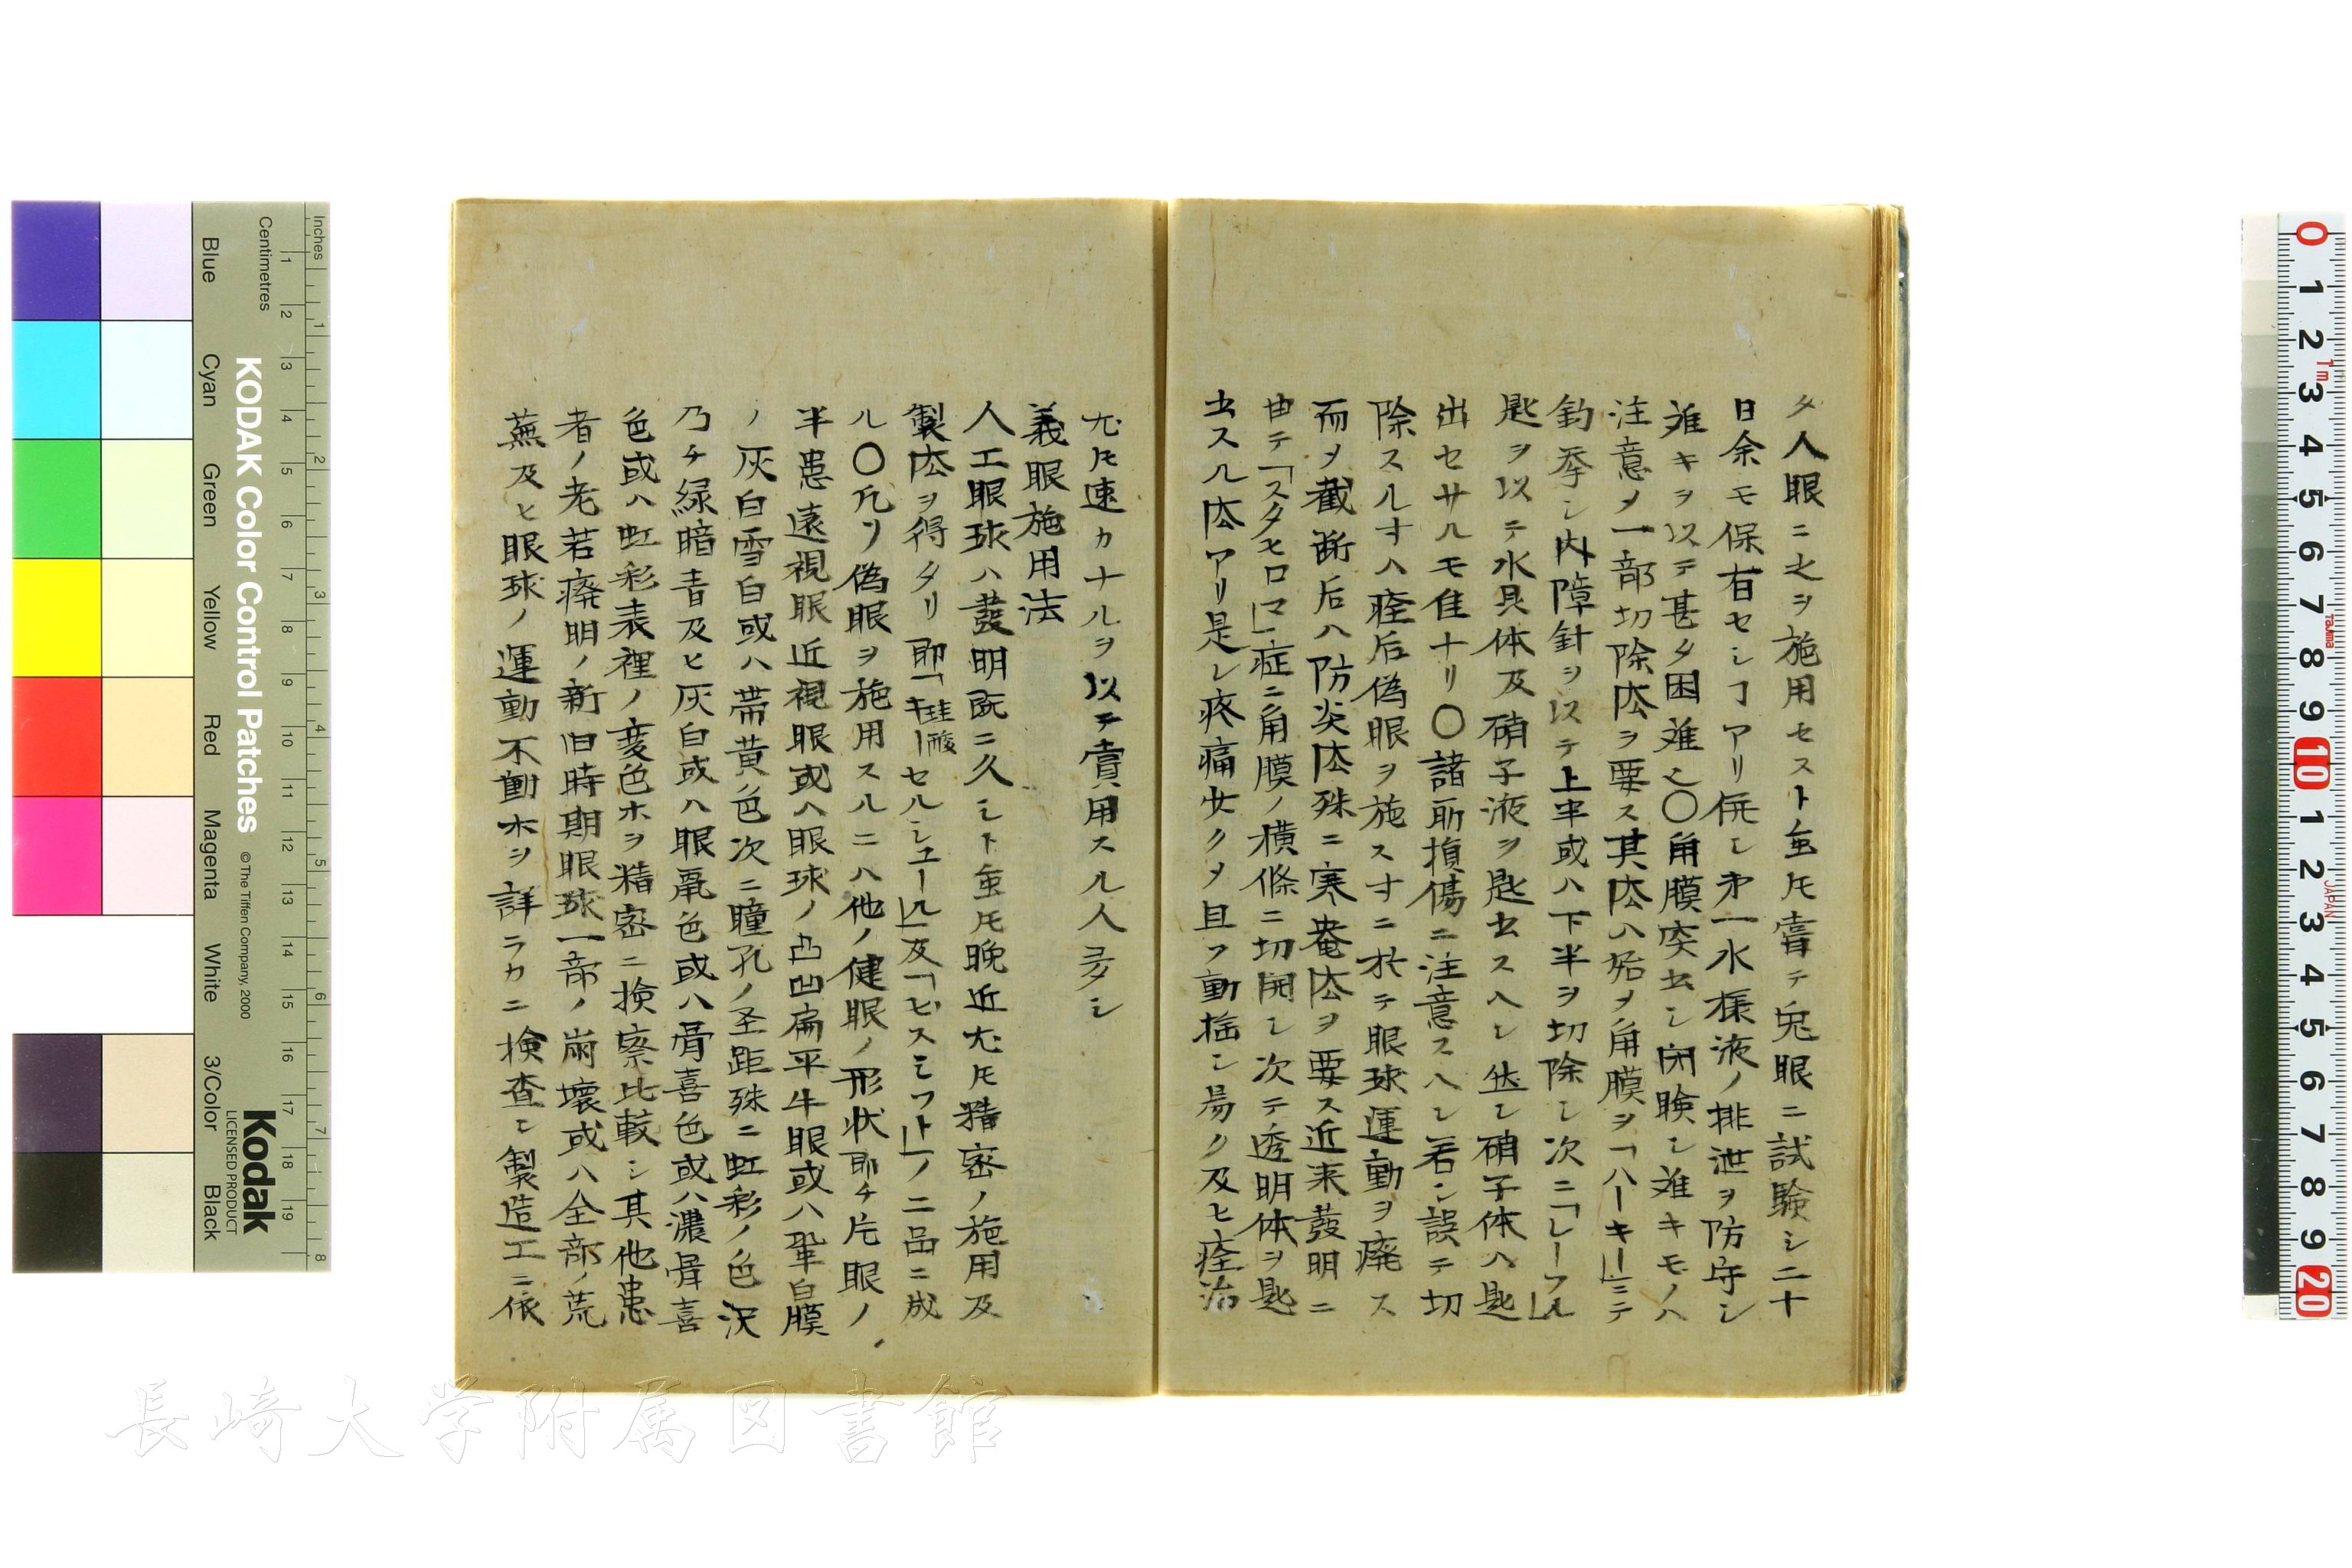 タ人眼ニ之ヲ施用セスト虽𪜈嘗テ兎眼ニ試験シ二十
日余モ保有セシヿアリ併シ第一水様液ノ排泄ヲ防守シ
难キヲ以テ甚タ困难也〇角膜突出シ閉瞼シ难キモノハ
注意メ一部切除法ヲ要ス其法ハ始メ角膜ヲ「ハーキー」ニテ
釣牽シ内障針ヲ以テ上半或ハ下半ヲ切除シ次ニ「レーフル」
匙ヲ以テ水晶体及硝子液ヲ匙出スヘシ然シ硝子体ハ匙
出セサルモ佳ナリ〇諸所損傷ニ注意スヘシ若シ誤テ切
除スルオハ痊后偽眼ヲ施スオニ於テ眼球運動ヲ廃ス
而メ截断后ハ防炎法殊ニ寒罨法ヲ要ス近来發明ニ
由テ「スタヒロマ」症ニ角膜ノ横條ニ切開シ次テ透明体ヲ匙
出スル法アリ是レ疼痛少クメ且ツ動揺シ易ク及ヒ痊治
尤𪜈速カナルヲ以テ賞用スル人多シ
義眼施用法
人工眼球ハ發明既ニ久シト虽𪜈晩近尤𪜈精密ノ施用及
製法ヲ得タリ即「キー硅酸セルシユール」及「ビスミット」ノ二品ニ成
ル〇凡ソ偽眼ヲ施用スルニハ他ノ健眼ノ形状即チ片眼ノ
半患遠視眼近視眼或ハ眼球ノ凸凹扁平牛眼或ハ鞏白膜
ノ灰白雪白或ハ帯黄色次ニ瞳孔ノ圣距殊ニ虹彩ノ色沢
乃チ緑暗青及ヒ灰白或ハ眼鼠色或ハ骨喜色或ハ濃骨喜
色或ハ虹彩表裡ノ変色ホヲ精密ニ検察比較シ其他患
者ノ老若廃明ノ新旧時期眼球一部ノ崩壊或ハ全部ノ荒
蕪及ヒ眼球ノ運動不動ホヲ詳ラカニ検査シ製造工ニ依
Inches
Centimetres
KODAK Color Control Patches
© The Tiffen Company, 2000
Kodak
LICENSED PRODUCT
Blue
Cyan
Green
Yellow
Red
Magenta
White
3/Color
Black
長崎大学附属図書館